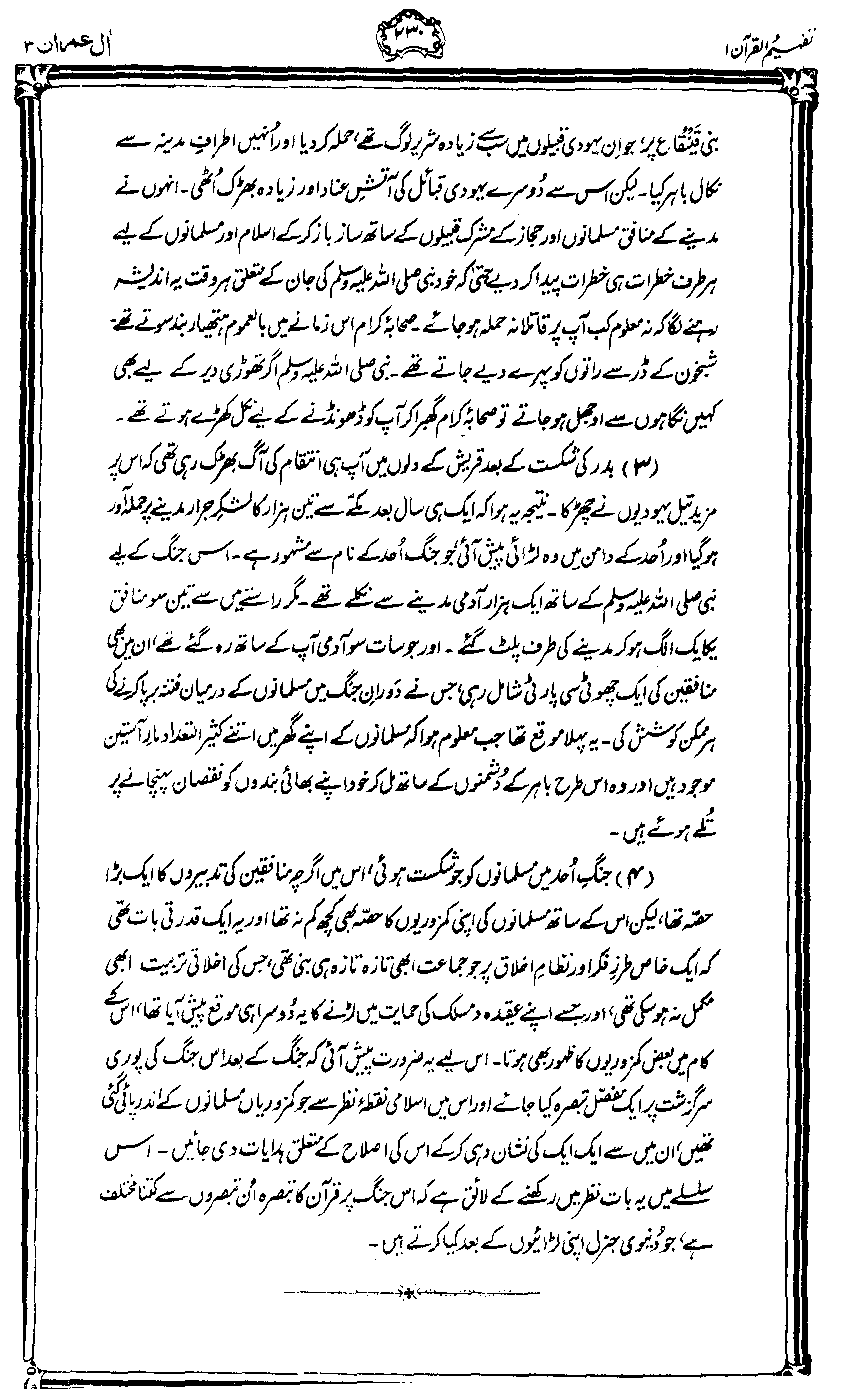 تفہیم القرآن ۱
۲۳۰
اٰل عمران ۳
بنی قَینُقاع پر، جو ان یہودی قبیلوں میں سب سے زیادہ شریر لوگ تھے، حملہ کر دیا اور اُنہیں اطرافِ مدینہ سے
نکال باہر کیا۔ لیکن اس سے دُوسرے یہودی قبائل کی آتشِ عناد اور زیادہ بھڑک اُٹھی۔ انہوں نے
مدینے کے منافق مسلمانوں اور حجاز کے مشرک قبیلوں کے ساتھ ساز باز کر کے اسلام اور مسلمانوں کے لیے
ہر طرف خطرات ہی خطرات پیدا کر دیے حتیٰ کہ خود نبی صلی اللہ علیہ وسلم کی جان کے متعلق ہر وقت یہ اندیشہ
رہنے لگا کہ نہ معلوم کب آپ پر قاتلانہ حملہ ہو جائے۔ صحابۂ کرام اس زمانے میں بالعموم ہتھیار بند سوتے تھے۔
شبخون کے ڈر سے راتوں کو پہرے دیے جاتے تھے۔ نبی صلی اللہ علیہ وسلم اگر تھوڑی دیر کے لیے بھی
کہیں نگاہوں سے اوجھل ہو جاتے تو صحابۂ کرام گھبرا کر آپ کو ڈھونڈنے کے لیے نکل کھڑے ہوتے تھے۔
(۳) بدر کی شکست کے بعد قریش کے دلوں میں آپ ہی انتقام کی آگ بھڑک رہی تھی کہ اس پر
مزید تیل یہودیوں نے چھڑکا۔ نتیجہ یہ ہوا کہ ایک ہی سال بعد مکّے سے تین ہزار کا لشکرِ جرار مدینے پر حملہ آور
ہو گیا اور اُحد کے دامن میں وہ لڑائی پیش آئی، جو جنگ اُحد کے نام سے مشہور ہے۔ اس جنگ کے لیے
نبی صلی اللہ علیہ وسلم کے ساتھ ایک ہزار آدمی مدینے سے نکلے تھے۔ مگر راستے میں سے تین سو منافق
یکایک الگ ہو کر مدینے کی طرف پلٹ گئے۔ اور جو سات سو آدمی آپ کے ساتھ رہ گئے تھے، ان میں بھی
منافقین کی ایک چھوٹی سی پارٹی شامل رہی، جس نے دَورانِ جنگ میں مسلمانوں کے درمیان فتنہ برپا کرنے کی
ہر ممکن کوشش کی۔ یہ پہلا موقع تھا جب معلوم ہوا کہ مسلمانوں کے اپنے گھر میں اتنے کثیر التعداد مارِ آستین
موجود ہیں اور وہ اس طرح باہر کے دُشمنوں کے ساتھ مل کر خود اپنے بھائی بندوں کو نقصان پہنچانے پر
تُلے ہوئے ہیں۔
(۴) جنگِ اُحد میں مسلمانوں کو جو شکست ہوئی، اس میں اگرچہ منافقین کی تدبیروں کا ایک بڑا
حصّہ تھا، لیکن اس کے ساتھ مسلمانوں کی اپنی کمزوریوں کا حصّہ بھی کچھ کم نہ تھا اور یہ ایک قدرتی بات تھی
کہ ایک خاص طرزِ فکر اور نظامِ اخلاق پر جو جماعت ابھی تازہ تازہ ہی بنی تھی، جس کی اخلاقی تربیت ابھی
مکمل نہ ہو سکی تھی، اور جسے اپنے عقیدہ و مسلک کی حمایت میں لڑنے کا یہ دُوسرا ہی موقع پیش آیا تھا، اس کے
کام میں بعض کمزوریوں کا ظہور بھی ہوتا۔ اس لیے یہ ضرورت پیش آئی کہ جنگ کے بعد اس جنگ کی پوری
سرگزشت پر ایک مفصّل تبصرہ کیا جائے اور اس میں اسلامی نقطۂ نظر سے جو کمزوریاں مسلمانوں کے اندر پائی گئی
تھیں، ان میں سے ایک ایک کی نشان دہی کر کے اس کی اصلاح کے متعلق ہدایات دی جائیں۔ اس
سلسلے میں یہ بات نظر میں رکھنے کے لائق ہے کہ اس جنگ پر قرآن کا تبصرہ اُن تبصروں سے کتنا مختلف
ہے، جو دُنیوی جنرل اپنی لڑائیوں کے بعد کیا کرتے ہیں۔